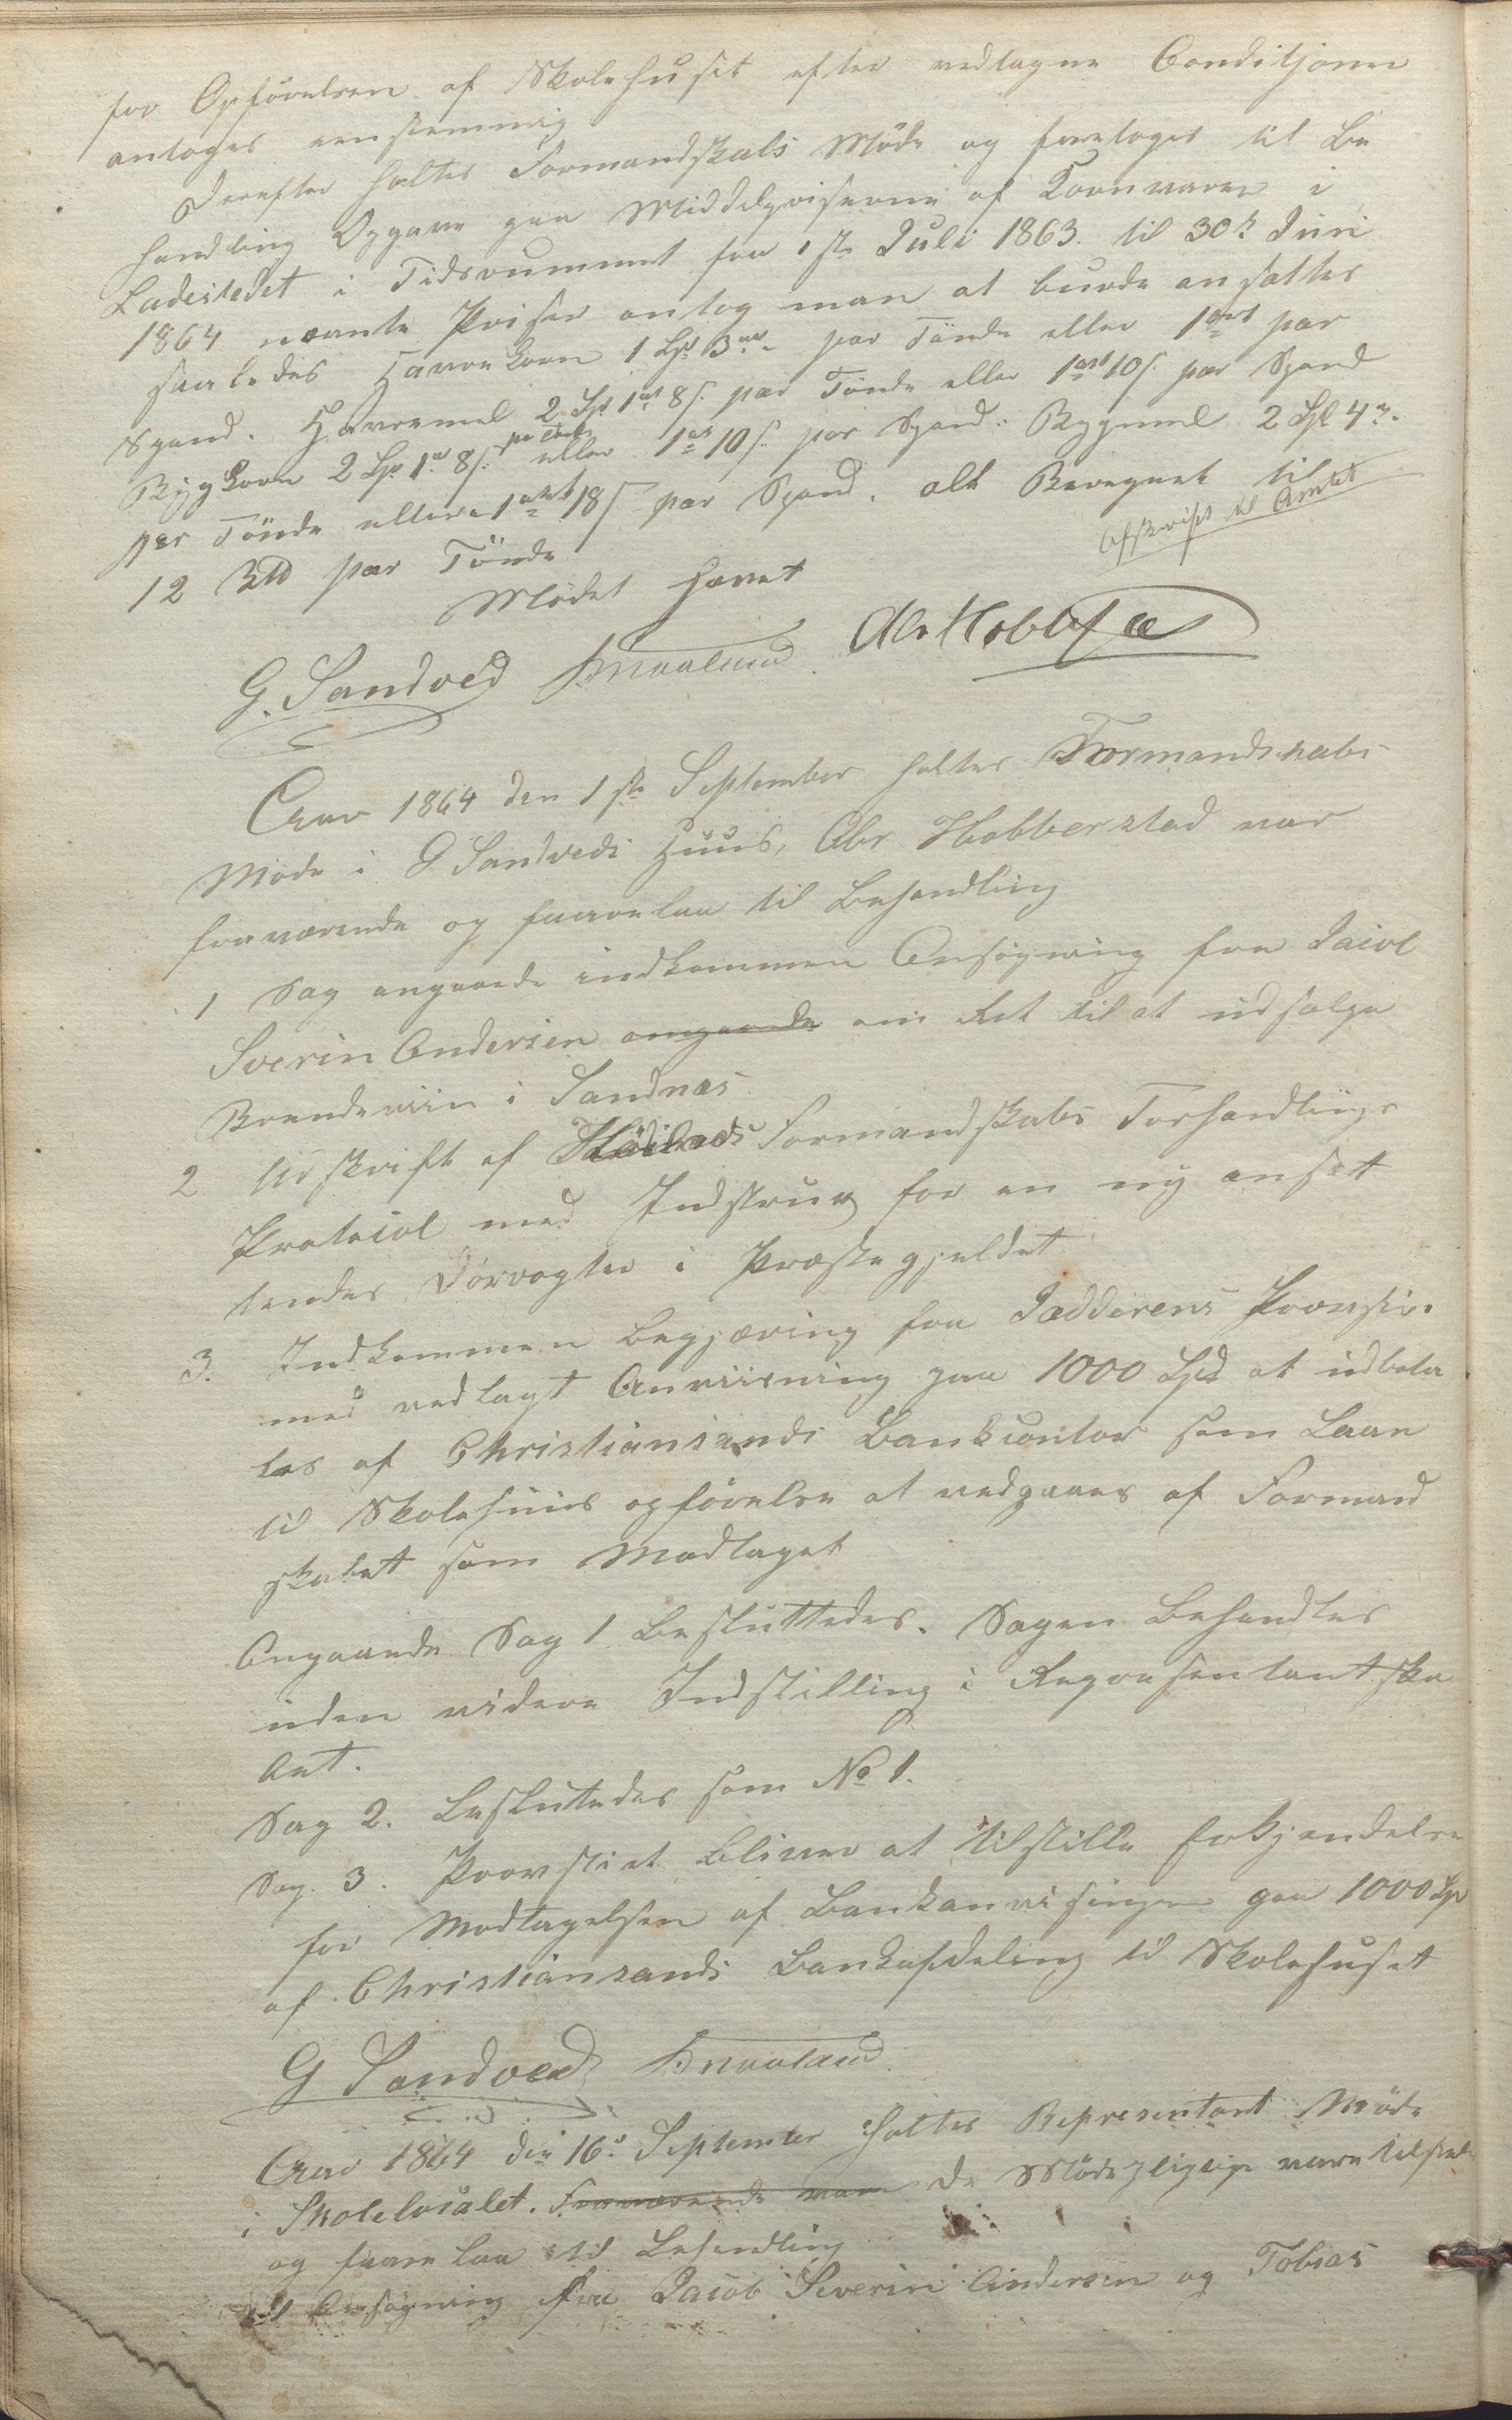 for Opførelsen af Skolehuset efter vedtagne Conditjoner
antoges eenstemmig
Derefter holtes Formandskabs Møde og foretoges til Be
handling Opgave paa Middelpriserne af Kornvarer i
Ladestedet i Tidsrummet fra 1ste Juli 1863. til 30te Juni
1864 nævnte Priser antog man at burde ansættes
saaledes Havrekorn 1 Spd 3 ort per Tønde eller 1 ort per
Spand. Havremel 2 Spd 1 ort 8 s. per Tønde eller 1 ort 10 s. per Spand
Bygkorn 2 Spd 1 ort 8 s. per Tønde eller 1 ort 10 s. per Spand. Bygmel 2 Spd 4 ort
per Tønde eller 1 ort 18 s per Spand. alt Beregnet til
12 per Tønde
Afskrift til Amtet
Mødet hævet
G. Sandved Maaland Abr Hobbe
Aar 1864 den 1ste September holtes Formandskabs
Møde i G Sandveds Huus, Abr Hobberstad var
fraværende og forelaa til Behandling
1 Sag angaaende indkommen Ansøgning fra Jacob
Sverin Andersen angaaende om Ret til at udsælge
Brændeviin i Sandnæs
2 Udskrift af Høilands Formandskabs Forhandlings
Protocol med Instrux for en ny ansæt
tendes Dørvogter i Præstegjeldet
3. Indkommen Begjæring fra Jædderens Provsti
med vedlagt Anviisning paa 1000 Spd at udbeta
les af Christiansands Bankcontor som Laan
til Skolehuus opførelse at vedgaaes af Formand
skabet som Modtaget
Angaaende Sag 1 Besluttedes. Sagen Behandles
uden videre Indstilling i Repræsentantska
bet.
Sag 2. Beslutedes som No 1.
Sag. 3. Provstiet bliver at tilstille Erkjendelse
for Modtagelsen af Bankanvisingen paa 1000 Spd
af Christiansands Bankafdeling til Skolehuset
G Sandved Maaland
Aar 1864 den 16de September holtes Representant Møde
i Skolelocalet. Fraværende var De Mødepligtige vare tilstede
og forelaa til Behandling
1 Ansøgning fra Jacob Severin Andersen og Tobias